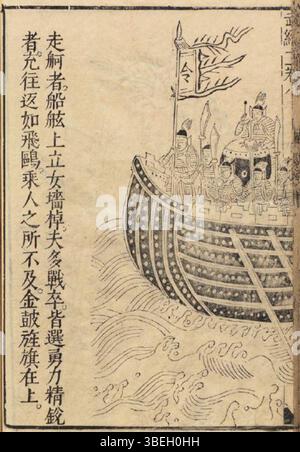 令
走舸者船舷上立女墻棹夫多戰卒皆選勇力精銳
者充往返如飛鷗乘人之所不及金鼓旌旗在上。
alamy
Image ID: 3BEH0HH
www.alamy.com